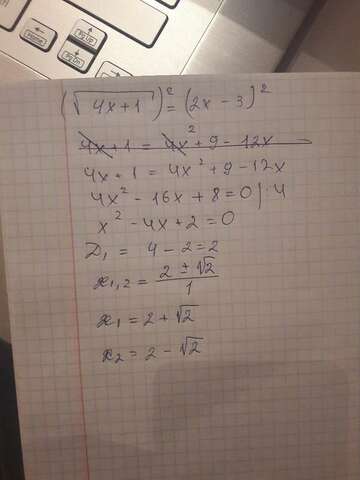 Home
Pg Up
Pg Dn
(√4x+1)² = (2x-3)²
4x+1 = 4x²+9-12x
4x+1 = 4x²+9-12x
4x²-16x+8=0|:4
x²-4x+2=0
D₁ = 4-2=2
x₁,₂ = 2±√2/1
x₁ = 2+√2
x₂ = 2-√2